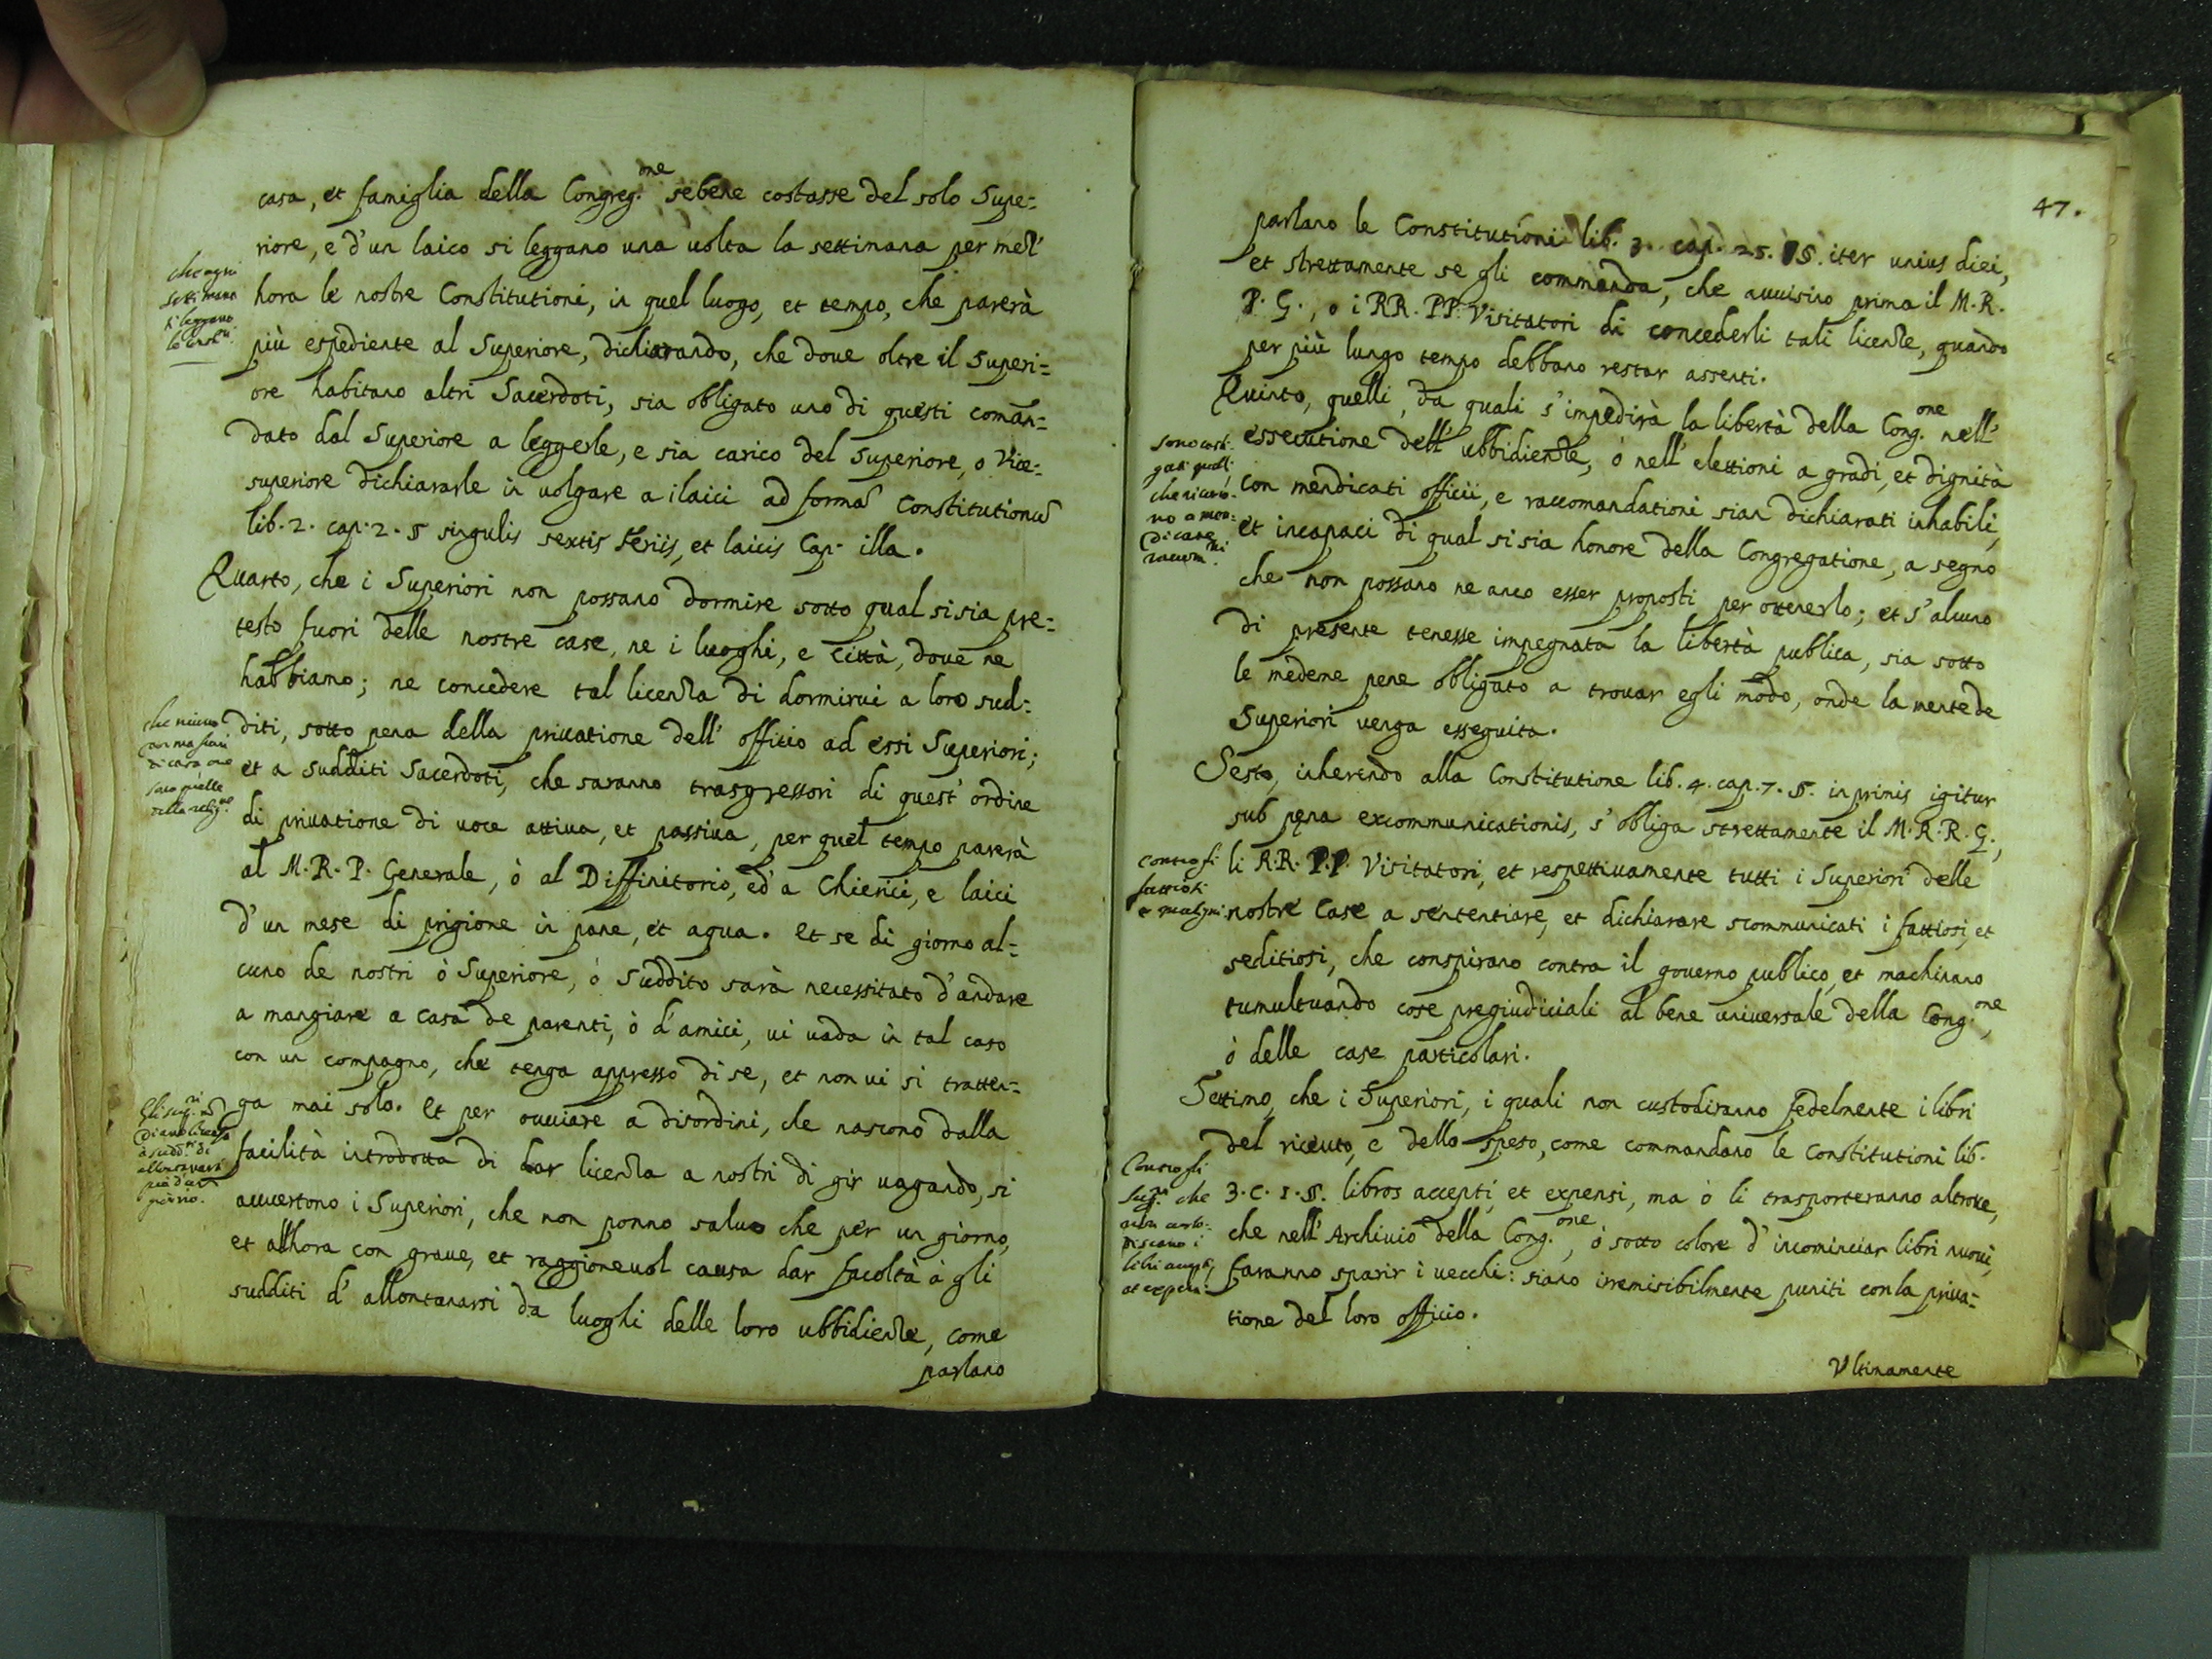 casa, et famiglia della Congreg.one sebene costasse del solo Supe=
riore, e d'un laico si leggano una uolta la settimana per mez'
hora le nostre Constitutioni, in quel luogo, et tempo, che parerà
più espediente al Superiore, dichiarando, che doue oltre il Superi=
ore habitano altri Sacerdoti, sia obligato uno di questi coman=
dato dal Superiore a leggerle, e sia carico del Superiore, o Vice=
superiore dichiararle in uolgare a i laici ad formã Constitutionũ
lib. 2. cap. 2. § singulis sextis feriis, et laicis Cap. illa.
Quarto, che i Superiori non possano dormire sotto qual si sia pre=
testo fuori delle nostre case, ne i luoghi, e Città, doue ne
habbiamo; ne concedere tal licenza di dormirui a loro sud=
diti, sotto pena della priuatione dell' offitio ad essi Superiori;
et a sudditi Sacerdoti, che saranno trasgressori di quest' ordine
di priuatione di uoce attiua, et passiua, per quel tempo parerà
al M. R. P. Generale, ò al Diffinitorio, ed' a Chierici, e laici
d'un mese di prigione in pane, et aqua. Et se di giorno al=
cuno de nostri ò Superiore, ò suddito sarà necessitato d'andare
a mangiare a casa de parenti, ò d'amici, ui uada in tal caso
con un compagno, che tenga appresso di se, et non ui si tratten=
ga mai solo. Et per ouuiare a disordini, che nascono dalla
facilità introdotta di dar licenza a nostri di gir uagando, si
auuertono i Superiori, che non ponno saluo che per un giorno,
et allhora con graue, et raggioneuol causa dar facoltà à gli
sudditi d' allontanarsi da luoghi delle loro ubbidienze, come
parlano
che ogni
settimana
si leggano
le Const.ni
che niuno
di casa
quelle
della relig.ne
Gli sup.ri nõ
diano licenza
à sudd.ti di
allontanarsi
più d'un
giorno.
47.
parlano le Constitutioni lib. 3. cap. 25. §. iter unius diei,
et strettamente se gli commanda, che auuisino prima il M. R.
P. G., o i RR. PP. Visitatori di concederli tali licenze, quando
per più lungo tempo debbano restar assenti.
Quinto, quelli, da quali s'impedirà la libertà della Cong.one nell'
essecutione dell' ubbidienze, ò nell' elettioni a gradi, et dignità
con mendicati officii, e raccomandationi sian dichiarati inhabili,
et incapaci di qual si sia honore della Congregatione, a segno
che non possano ne anco esser proposti per ottenerlo; et s'alcuno
di presente tenesse impegnata la libertà publica, sia sotto
le medeme pene obligato a trouar egli modo, onde la mente de
Superiori uenga esseguita.
Sesto, inherendo alla Constitutione lib. 4. cap. 7. §. in primis igitur
sub pęna excommunicationis, s'obliga strettamente il M. R. R. G.,
li R.R. P.P. Visitatori, et respettiuamente tutti i Superiori delle
nostre Case a sententiare, et dichiarare scommunicati i fattiosi, et
seditiosi, che conspirano contra il gouerno publico, et machinano
tumultuando cose pregiudiciali al bene uniuersale della Cong.one,
ò delle case particolari.
Settimo, che i Superiori, i quali non custodiranno fedelmente i libri
del riceuto, e dello speso, come commandano le Constitutioni lib.
3. c. 1. §. libros accepti, et expensi, ma ò li trasporteranno altroue,
che nell' Archiuio della Cong.one, ò sotto colore d' incominciar libri nuoui,
faranno sparir i uecchi: siano irremisibilmente puniti con la priua=
tione del loro officio.
Vltinamente
sono casti-
gati quelli
che ricorro-
no a men-
dicare
raccom.ni
Contro gli
fattiosi
e maligni
Contro gli
sup.ri che
non custo-
discano i
libri accepti,
et expensi